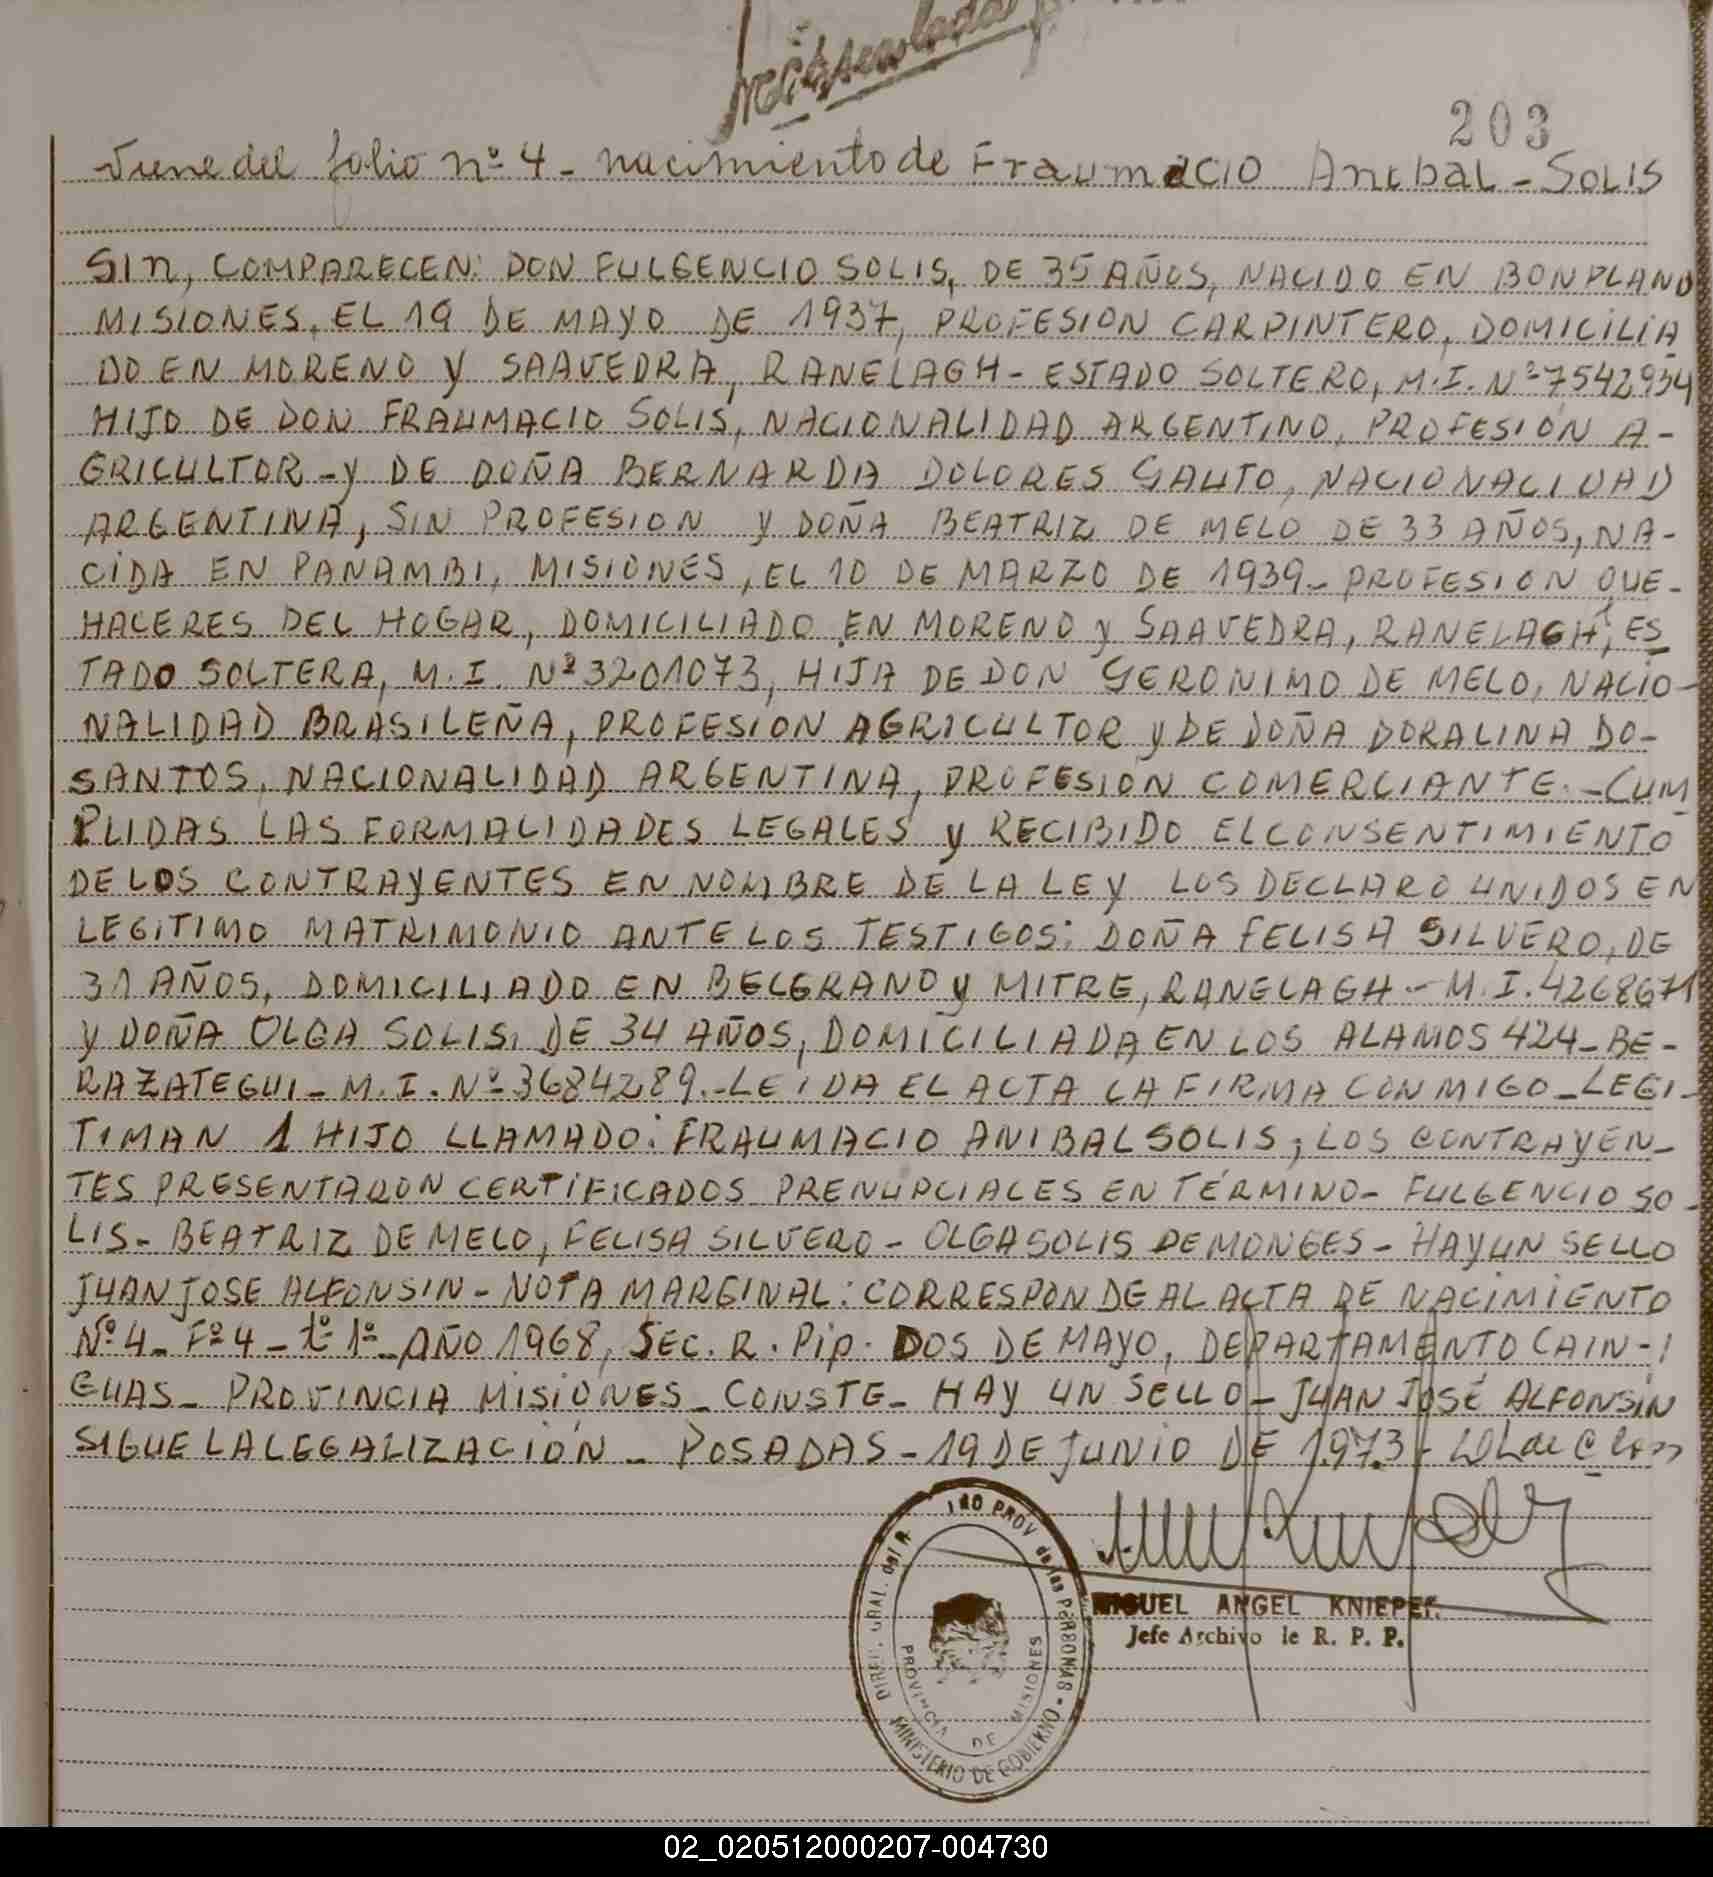 203
Viene del folio nº 4 - nacimiento de Fraumacio Anibal - Solis
SIN, COMPARECEN: DON FULGENCIO SOLIS, DE 35 AÑOS, NACIDO EN BONPLAND
MISIONES, EL 19 DE MAYO DE 1937, PROFESION CARPINTERO, DOMICILIA
DO EN MORENO Y SAAVEDRA, RANELAGH - ESTADO SOLTERO, M.I. Nº 7542934
HIJO DE DON FRAUMACIO SOLIS, NACIONALIDAD ARGENTINO, PROFESIÓN A-
GRICULTOR - y DE DOÑA BERNARDA DOLORES GAUTO, NACIONALIDAD
ARGENTINA, SIN PROFESION y DOÑA BEATRIZ DE MELO DE 33 AÑOS, NA-
CIDA EN PANAMBI, MISIONES, EL 10 DE MARZO DE 1939 - PROFESION QUE-
HACERES DEL HOGAR, DOMICILIADO EN MORENO y SAAVEDRA, RANELAGH, ES
TADO SOLTERA, M.I. Nº 3201073, HIJA DE DON GERONIMO DE MELO, NACIO-
NALIDAD BRASILEÑA, PROFESION AGRICULTOR y DE DOÑA DORALINA DO-
SANTOS, NACIONALIDAD ARGENTINA, PROFESIÓN COMERCIANTE. - CUM
PLIDAS LAS FORMALIDADES LEGALES y RECIBIDO EL CONSENTIMIENTO
DE LOS CONTRAYENTES EN NOMBRE DE LA LEY LOS DECLARO UNIDOS EN
LEGITIMO MATRIMONIO ANTE LOS TESTIGOS: DOÑA FELISA SILVERO, DE
31 AÑOS, DOMICILIADO EN BELGRANO y MITRE, RANELAGH - M.I. 4268671
y DOÑA OLGA SOLIS, DE 34 AÑOS, DOMICILIADA EN LOS ALAMOS 424 - BE-
RAZATEGUI - M.I. Nº 3684289. - LEIDA EL ACTA LA FIRMA CONMIGO - LEGI-
TIMAN 1 HIJO LLAMADO: FRAUMACIO ANIBAL SOLIS; LOS CONTRAYEN-
TES PRESENTARON CERTIFICADOS PRENUPCIALES EN TÉRMINO - FULGENCIO SO-
LIS - BEATRIZ DE MELO, FELISA SILVERO - OLGA SOLIS DE MONGES - HAY UN SELLO
JUAN JOSE ALFONSIN - NOTA MARGINAL: CORRESPONDE AL ACTA DE NACIMIENTO
Nº 4 - Fº 4 - tº 1º - AÑO 1968, SEC. R. Pip. DOS DE MAYO, DEPARTAMENTO CAIN-
GUAS - PROVINCIA MISIONES - CONSTE - HAY UN SELLO - JUAN JOSÉ ALFONSIN
SIGUE LA LEGALIZACIÓN - POSADAS - 19 DE JUNIO DE 1.973 -
PROV de las PERSONAS - MINISTERIO DE GOBIERNO
PROVINCIA DE MISIONES
MIGUEL ANGEL KNIEPEF.
Jefe Archivo de R. P. P.
02_020512000207-004730